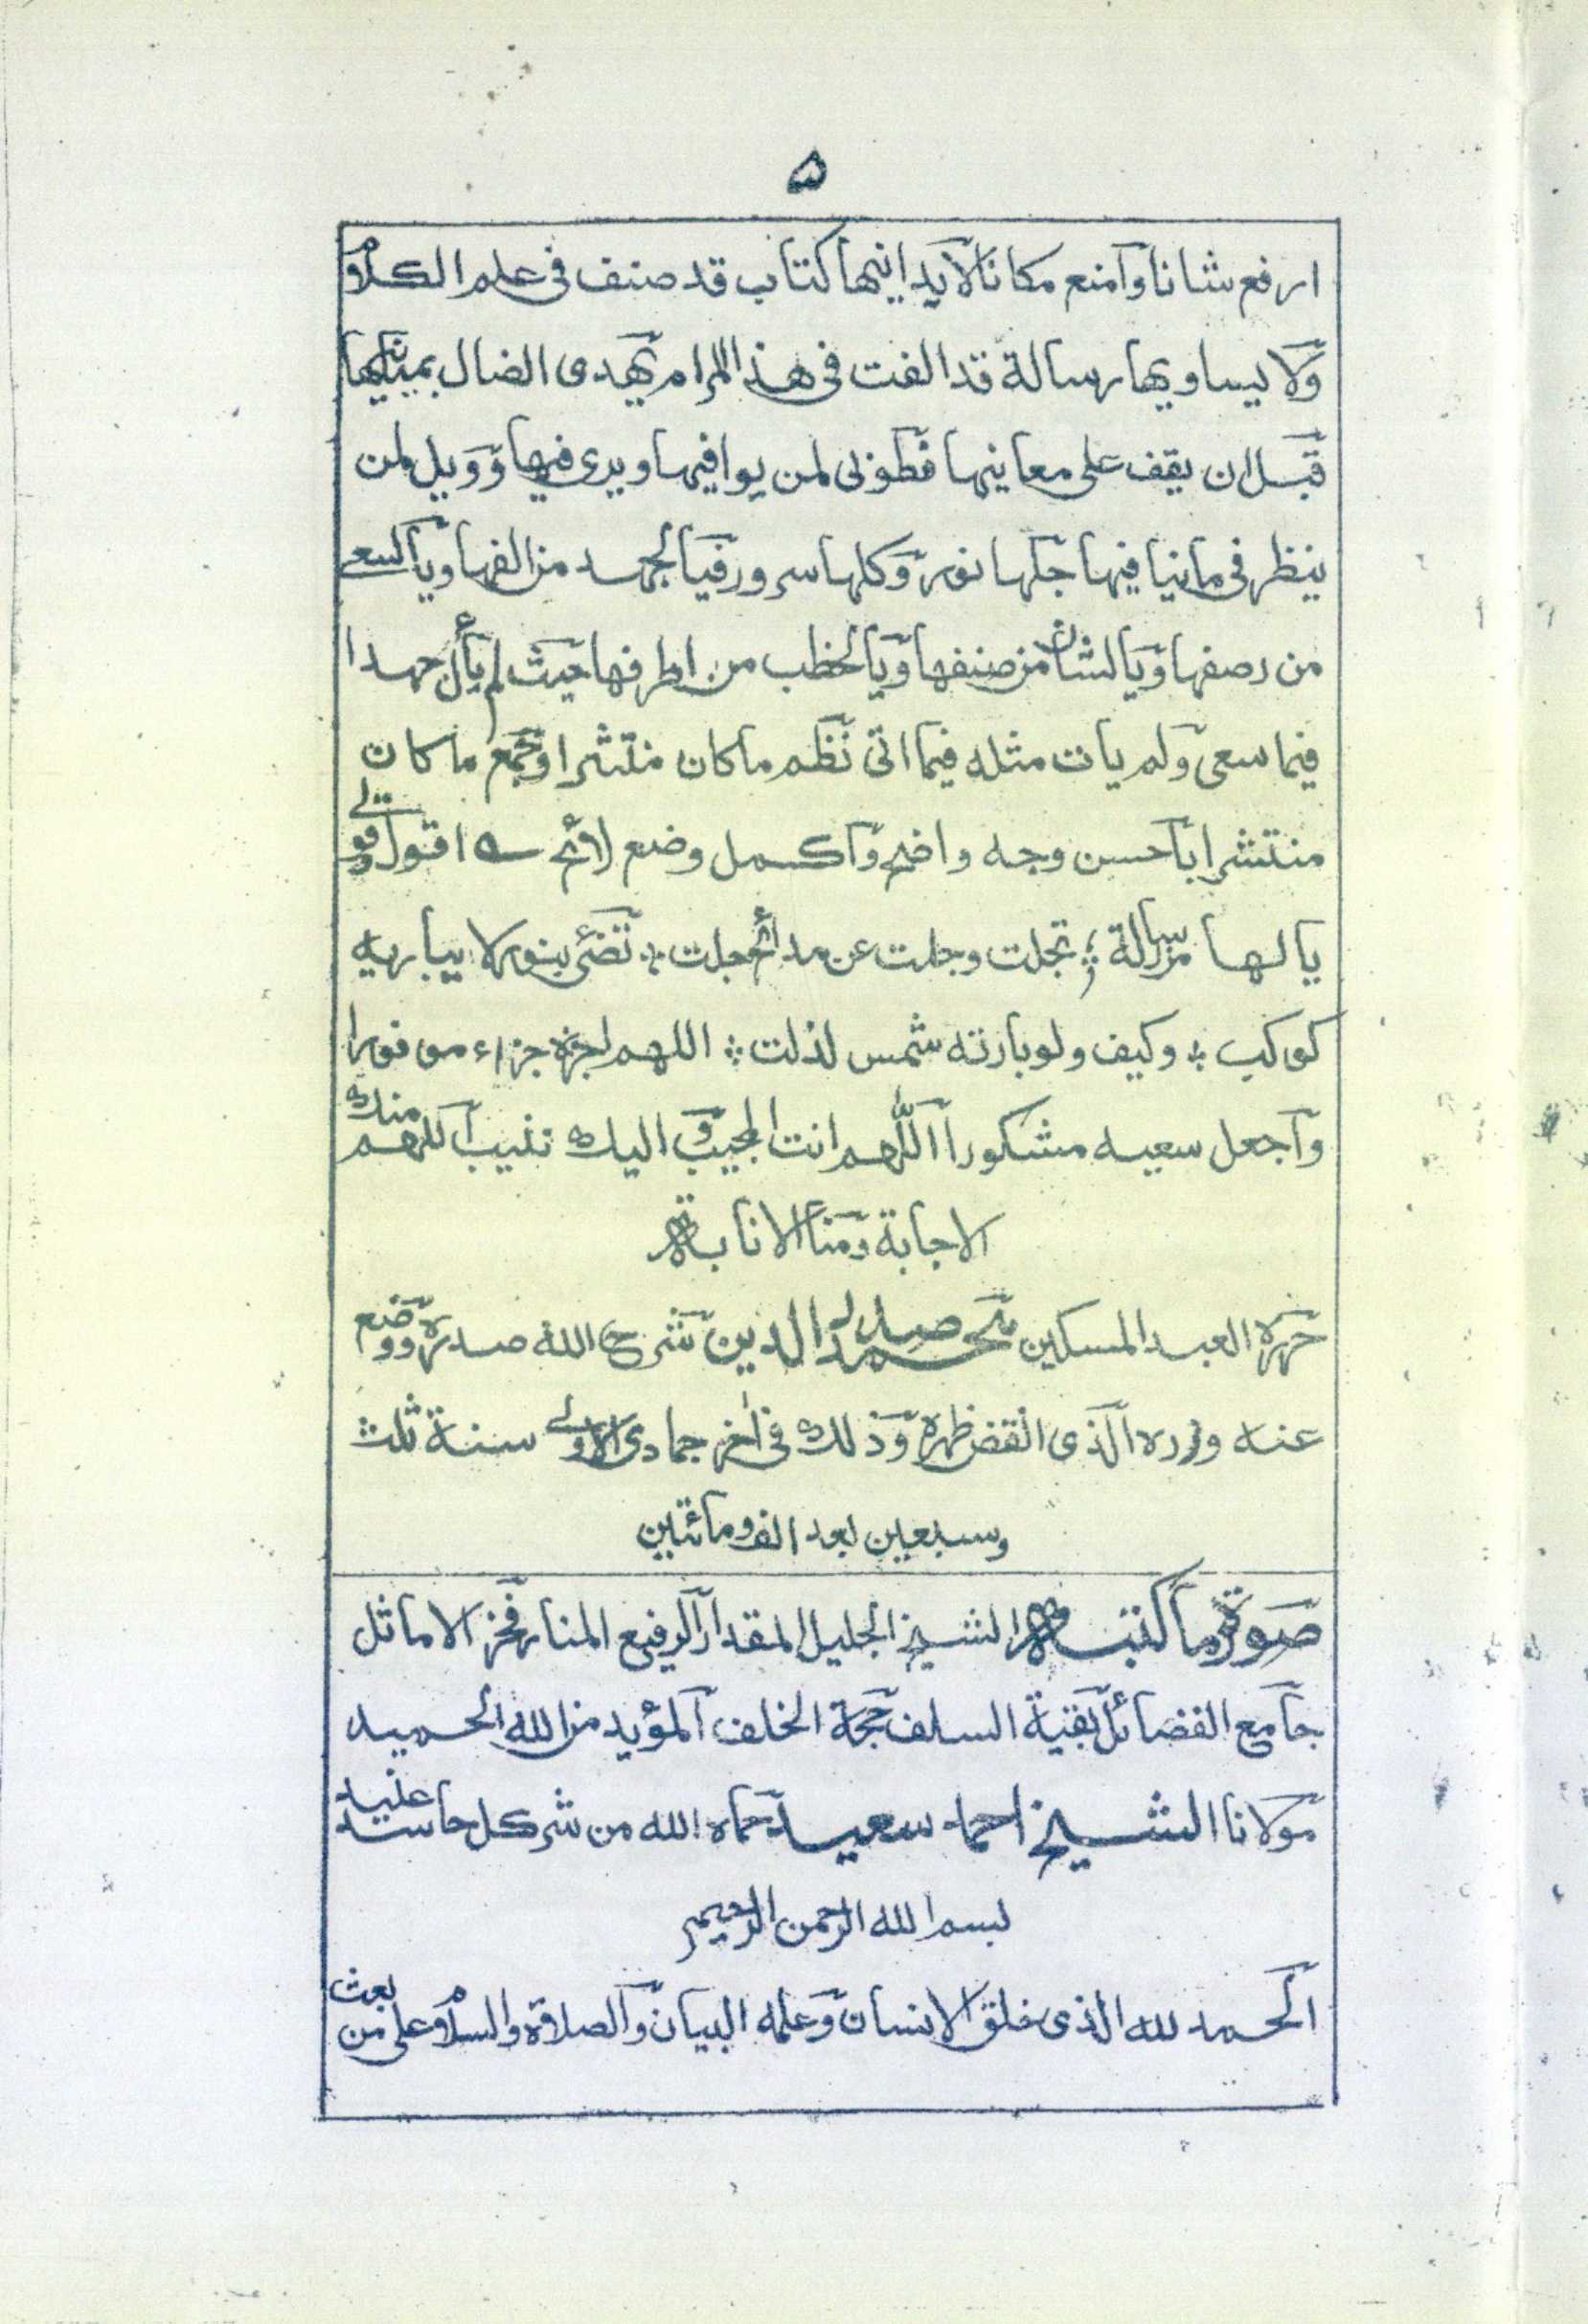 ۵
ارفع شانا وامنع مكانا لا يدانيها كتاب قد صنف فى علم الكلام
ولا يساويها رسالة قد الفت فى هذا المرام يهدى الضال بمبانيها
قبل ان يقف على معانيها فطوبى لمن يوافيها ويرى فيها وويل لمن
ينظر فى ما ينافيها جلها نور وكلها سرور فيا لجهد من الفها ويا لسعى
من رصفها ويا لشان من صنفها ويا لخطب من اطرفها حيث لم يأل جهدا
فيما سعى ولم يات مثله فيما اتى نظم ما كان منتثرا وجمع ما كان
منتشرا باحسن وجه واضح واكمل وضع لائح ؎ اقول وقولى
يا لها من رسالة ؛ تجلت وجلت عن مدائح جلت ؞ تضئ بنور لا يباريه
كوكب ؞ وكيف ولو بارته شمس لذلت ؞ اللهم اجزه جزاء موفورا
واجعل سعيه مشكورا اللهم انت المجيب واليك ننيب اللهم منك
الاجابة ومنا الانابة
حرره العبد المسكين محمد صدر الدين شرح الله صدره ووضع
عنه وزره الذى انقض ظهره وذلك فى اخر جمادى الاولى سنة ثلث
وسبعين بعد الف ومائتين
صورة ما كتبه الشيخ الجليل المقدار الرفيع المنار فخر الاماثل
جامع الفضائل بقية السلف حجة الخلف المؤيد من الله الحميد
مولانا الشيخ احمد سعيد حماه الله من شر كل حاسد عنيد
بسم الله الرحمن الرحيم
الحمد لله الذى خلق الانسان وعلمه البيان والصلاة والسلام على من بعث